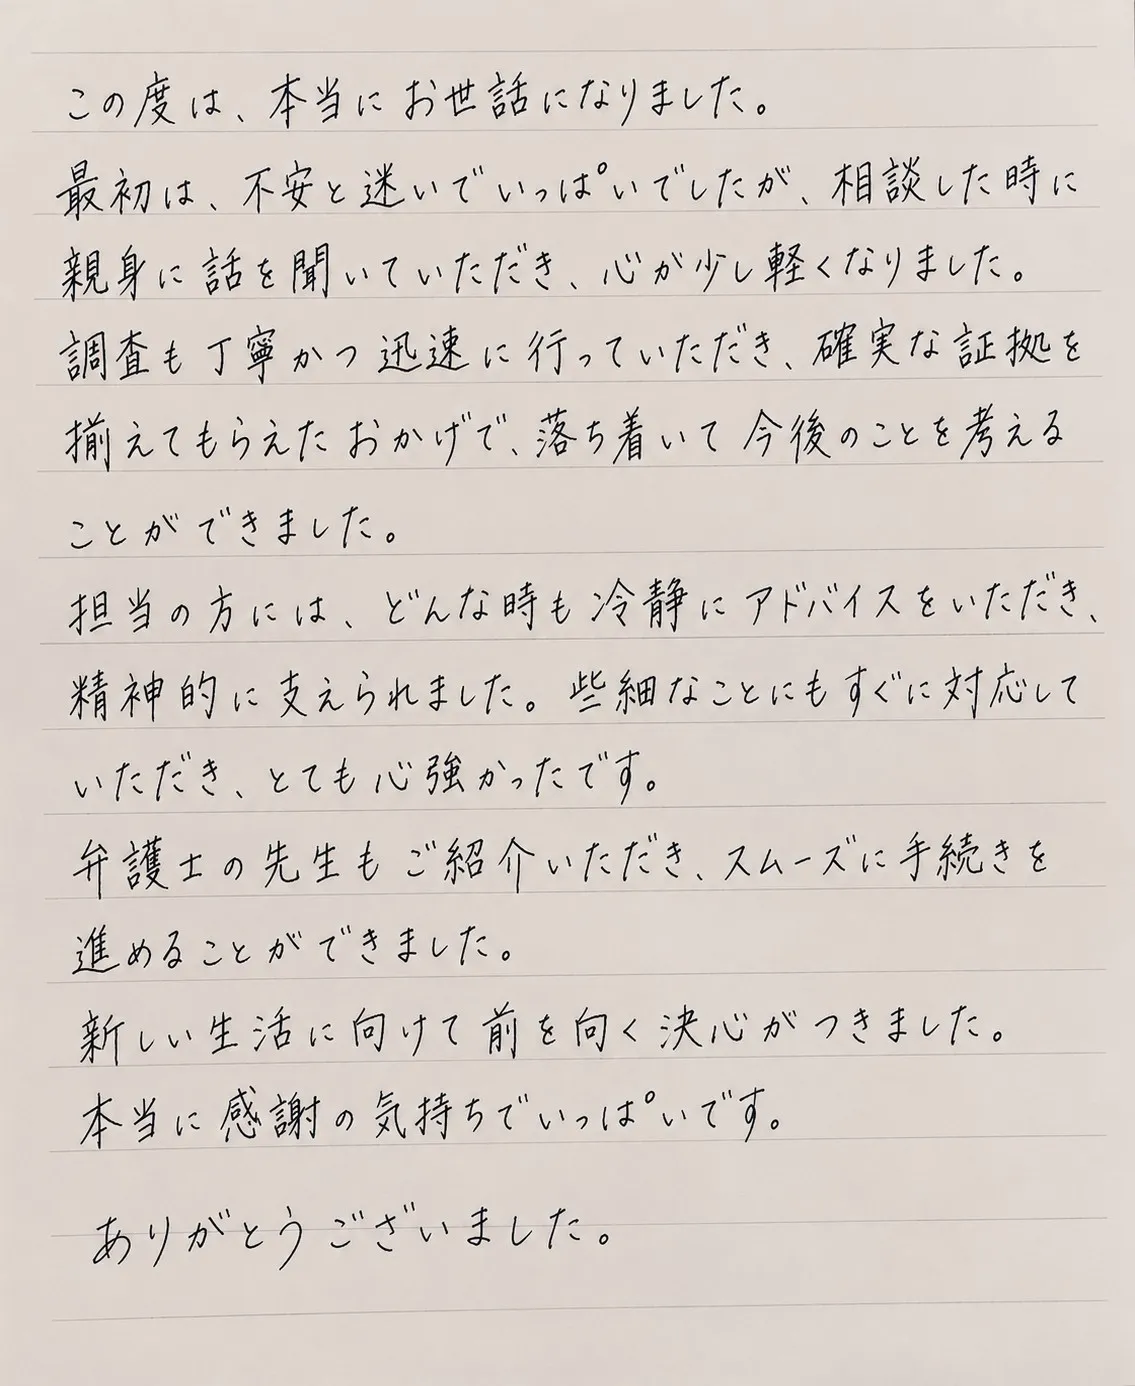 この度は、本当にお世話になりました。
最初は、不安と迷いでいっぱいでしたが、相談した時に
親身に話を聞いていただき、心が少し軽くなりました。
調査も丁寧かつ迅速に行っていただき、確実な証拠を
揃えてもらえたおかげで、落ち着いて今後のことを考える
ことができました。
担当の方には、どんな時も冷静にアドバイスをいただき、
精神的に支えられました。些細なことにもすぐに対応して
いただき、とても心強かったです。
弁護士の先生もご紹介いただき、スムーズに手続きを
進めることができました。
新しい生活に向けて前を向く決心がつきました。
本当に感謝の気持ちでいっぱいです。
ありがとうございました。